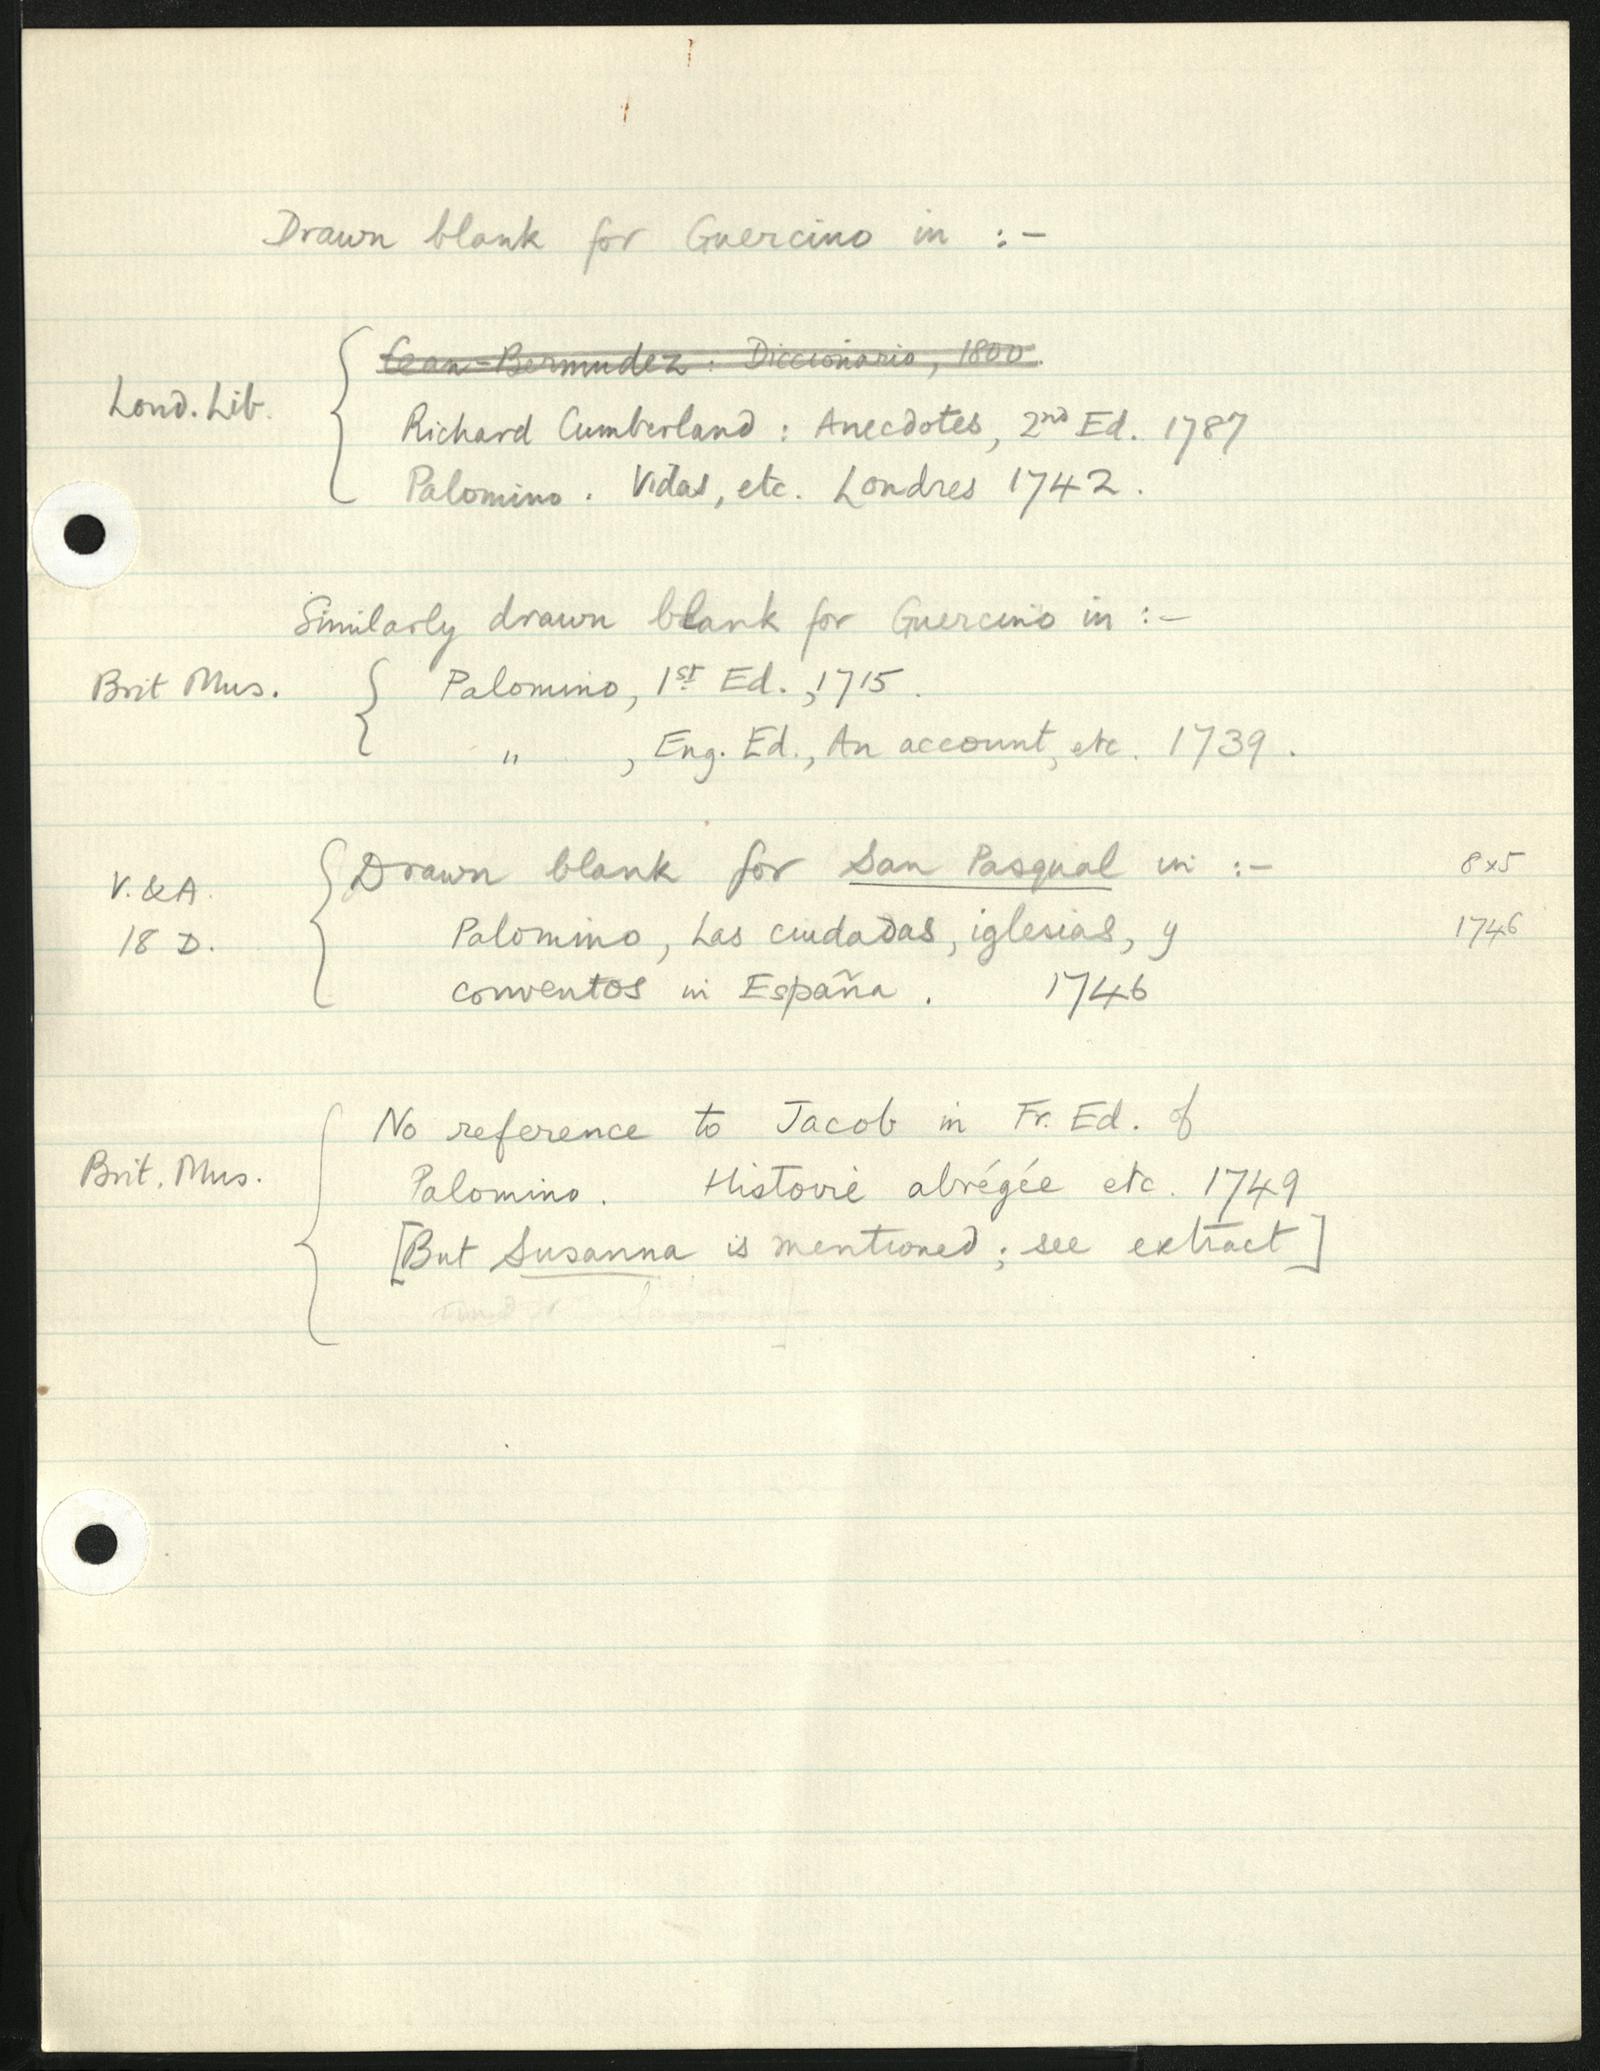 Drawn blank for Guercino in :-
Cean-Bermudez : Diccionario, 1800.
Lond. Lib.
Richard Cumberland : Anecdotes, 2nd Ed. 1787
Palomino. Vidas, etc. Londres 1742.
Similarly drawn blank for Guercino in :-
Brit Mus. Palomino, 1st Ed., 1715.
" , Eng. Ed., An account, etc. 1739.
Drawn blank for San Pasqual in :- 8x5
V. & A.
Palomino, Las ciudadas, iglesias, y 1746
18 D.
conventos in España. 1746
No reference to Jacob in Fr. Ed. of
Brit. Mus. Palomino. Histoire abrégée etc. 1749
[But Susanna is mentioned; see extract]